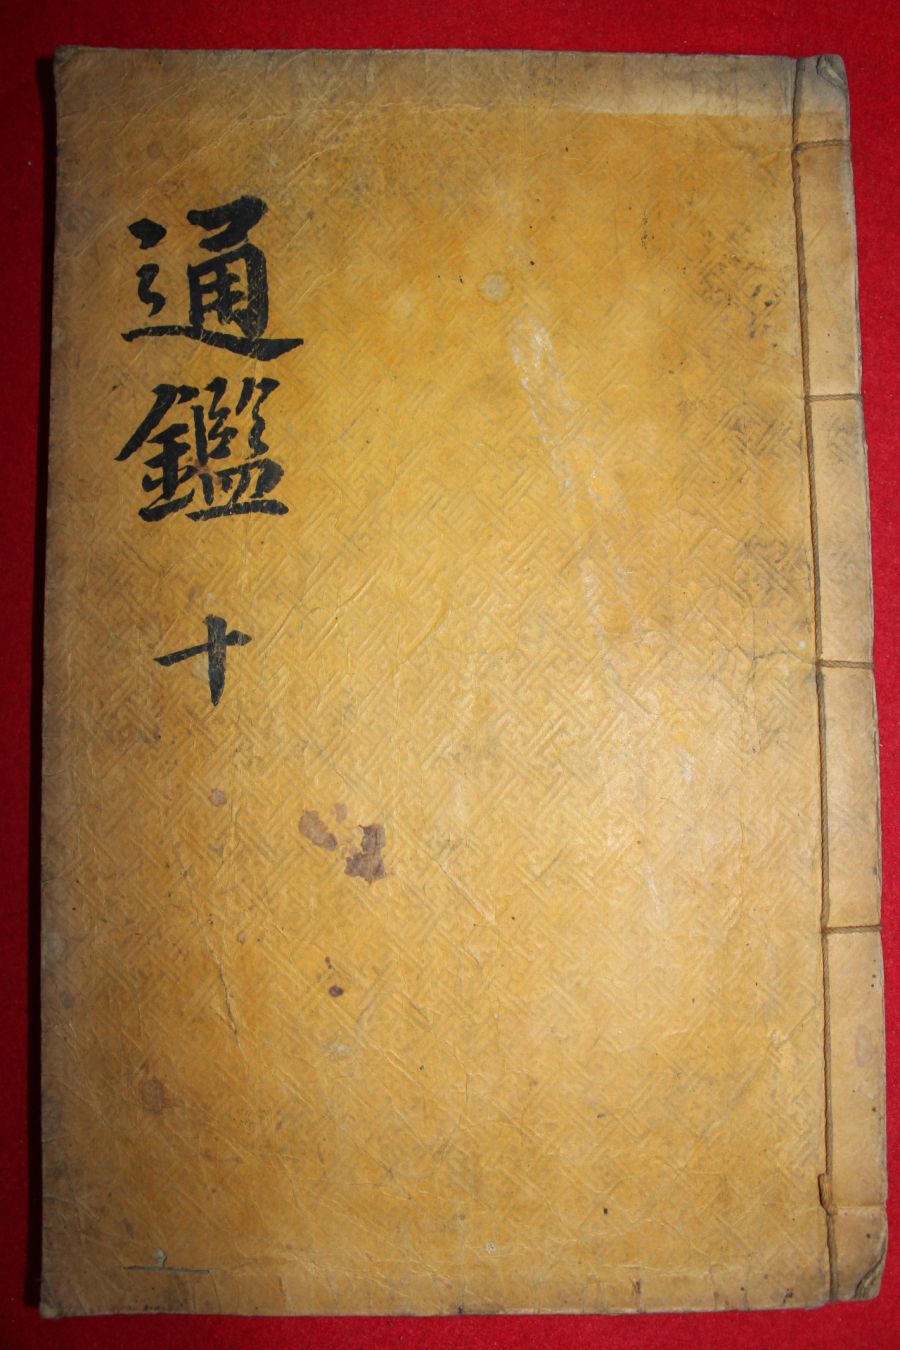 通鑑 十